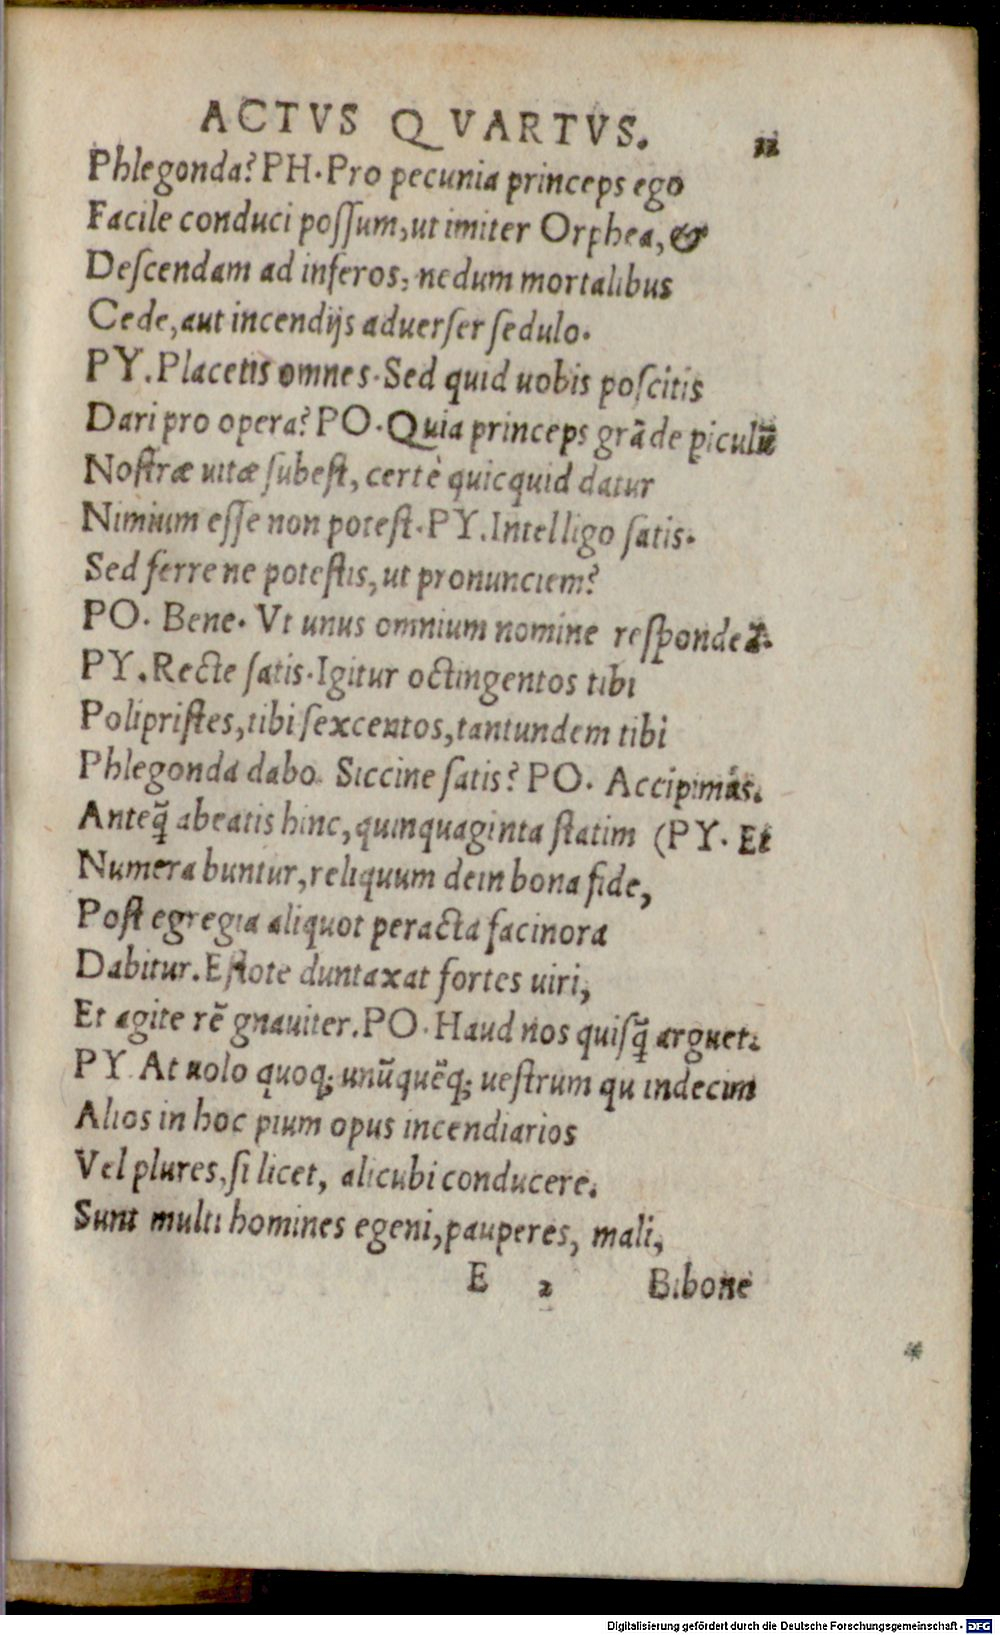 ACTVS QVARTVS.
Phlegonda? PH. Pro pecunia princeps ego
Facile conduci poſſum, ut imiter Orphea, &
Deſcendam ad inferos, nedum mortalibus
Cede, aut incendijs aduerſer ſedulo.
PY. Placetis omnes. Sed quid uobis poſcitis
Dari pro opera? PO. Quia princeps grāde piculū
Noſtræ uitæ ſubeſt, certè quicquid datur
Nimium eſſe non poteſt. PY. Intelligo ſatis.
Sed ferre ne poteſtis, ut pronunciem?
PO. Bene. Vt unus omnium nomine reſpondeā.
PY. Recte ſatis. Igitur octingentos tibi
Polipriſtes, tibi ſexcentos, tantundem tibi
Phlegonda dabo. Siccine ſatis? PO. Accipimus.
Anteq̃ abeatis hinc, quinquaginta ſtatim (PY. Et
Numerabuntur, reliquum dein bona fide,
Poſt egregia aliquot peracta facinora
Dabitur. Eſtote duntaxat fortes uiri,
Et agite rē gnauiter. PO. Haud nos quiſq̃ arguet.
PY At uolo quoq; unūquēq; ueſtrum qu indecim
Alios in hoc pium opus incendiarios
Vel plures, ſi licet, alicubi conducere.
Sunt multi homines egeni, pauperes, mali,
E 2 Bibone
Digitalisierung gefördert durch die Deutsche Forschungsgemeinschaft - DFG